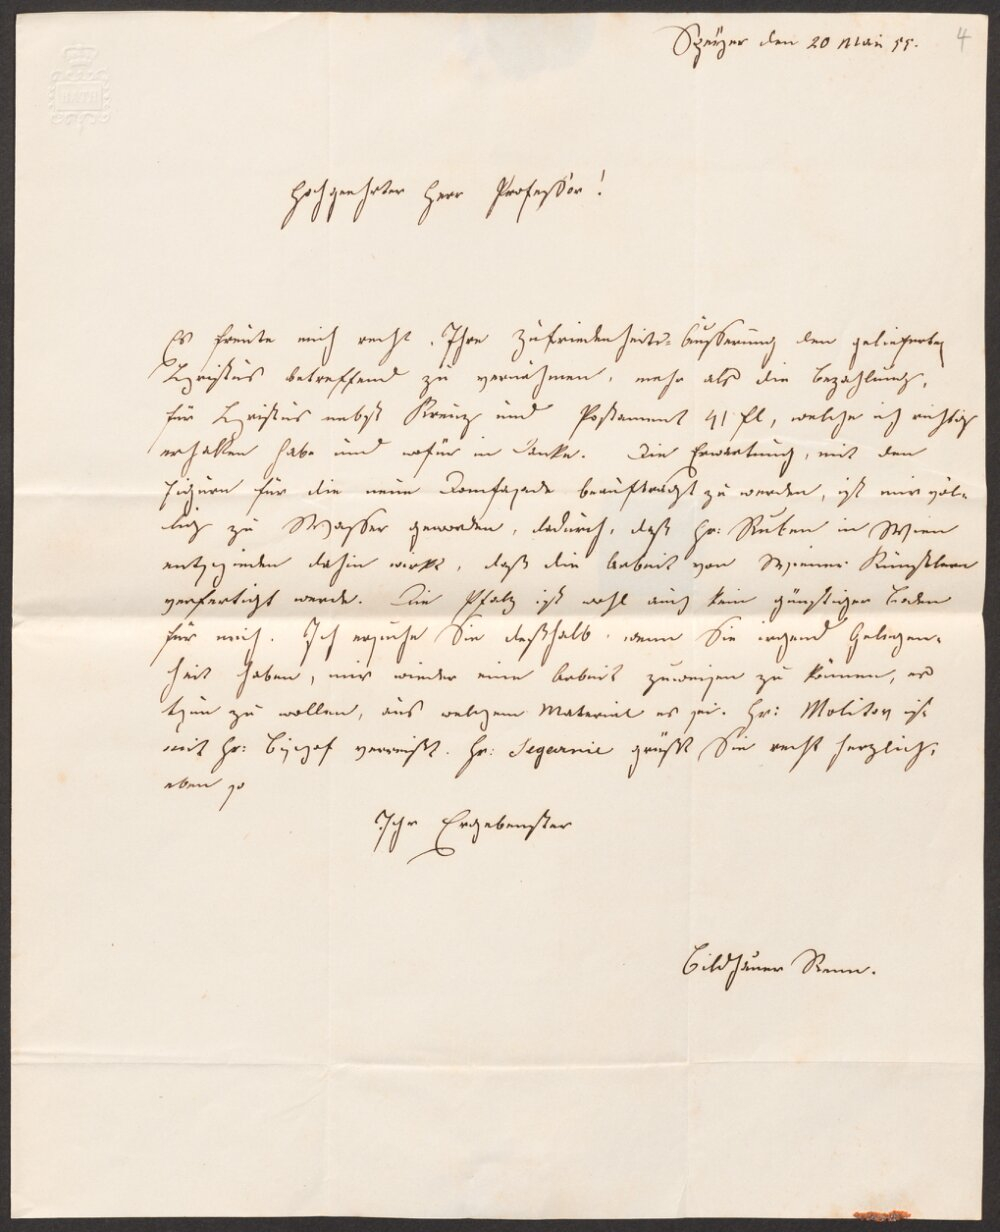 Speÿer den 20 Mai 55. 4
BATH
Hochgeehrter Herr Professor!
Es freute mich recht, Ihre Zufriedenheits-Äusserung den gelieferten
Christus betreffend zu vernehmen, mehr als die Bezahlung,
für Christus nebst Kreuz und Postament 41 fl, welche ich richtig
erhalten habe und wofür ich danke. Die Erwartung, mit den
Figuren für die neue Domfaςade beauftragt zu werden, ist mir völ-
lig zu Wasser geworden, dadurch, daß Hr: Ruben in Wien
entschieden dahin wirkt, daß die Arbeit von Wiener Künstlern
verfertigt werde. Die Pfalz ist wohl auch kein günstiger Boden
für mich. Ich ersuche Sie deßhalb, wenn Sie irgend Gelegen-
heit haben, mir wieder eine Arbeit zuweisen zu können, es
thun zu wollen, aus welchem Material es sei. Hr: Molitor ist
mit Hr: Bischof verreißt. Hr: Segarnie grüßt Sie recht herzlich,
eben so
Ihr Ergebenster
Bildhauer Renn.